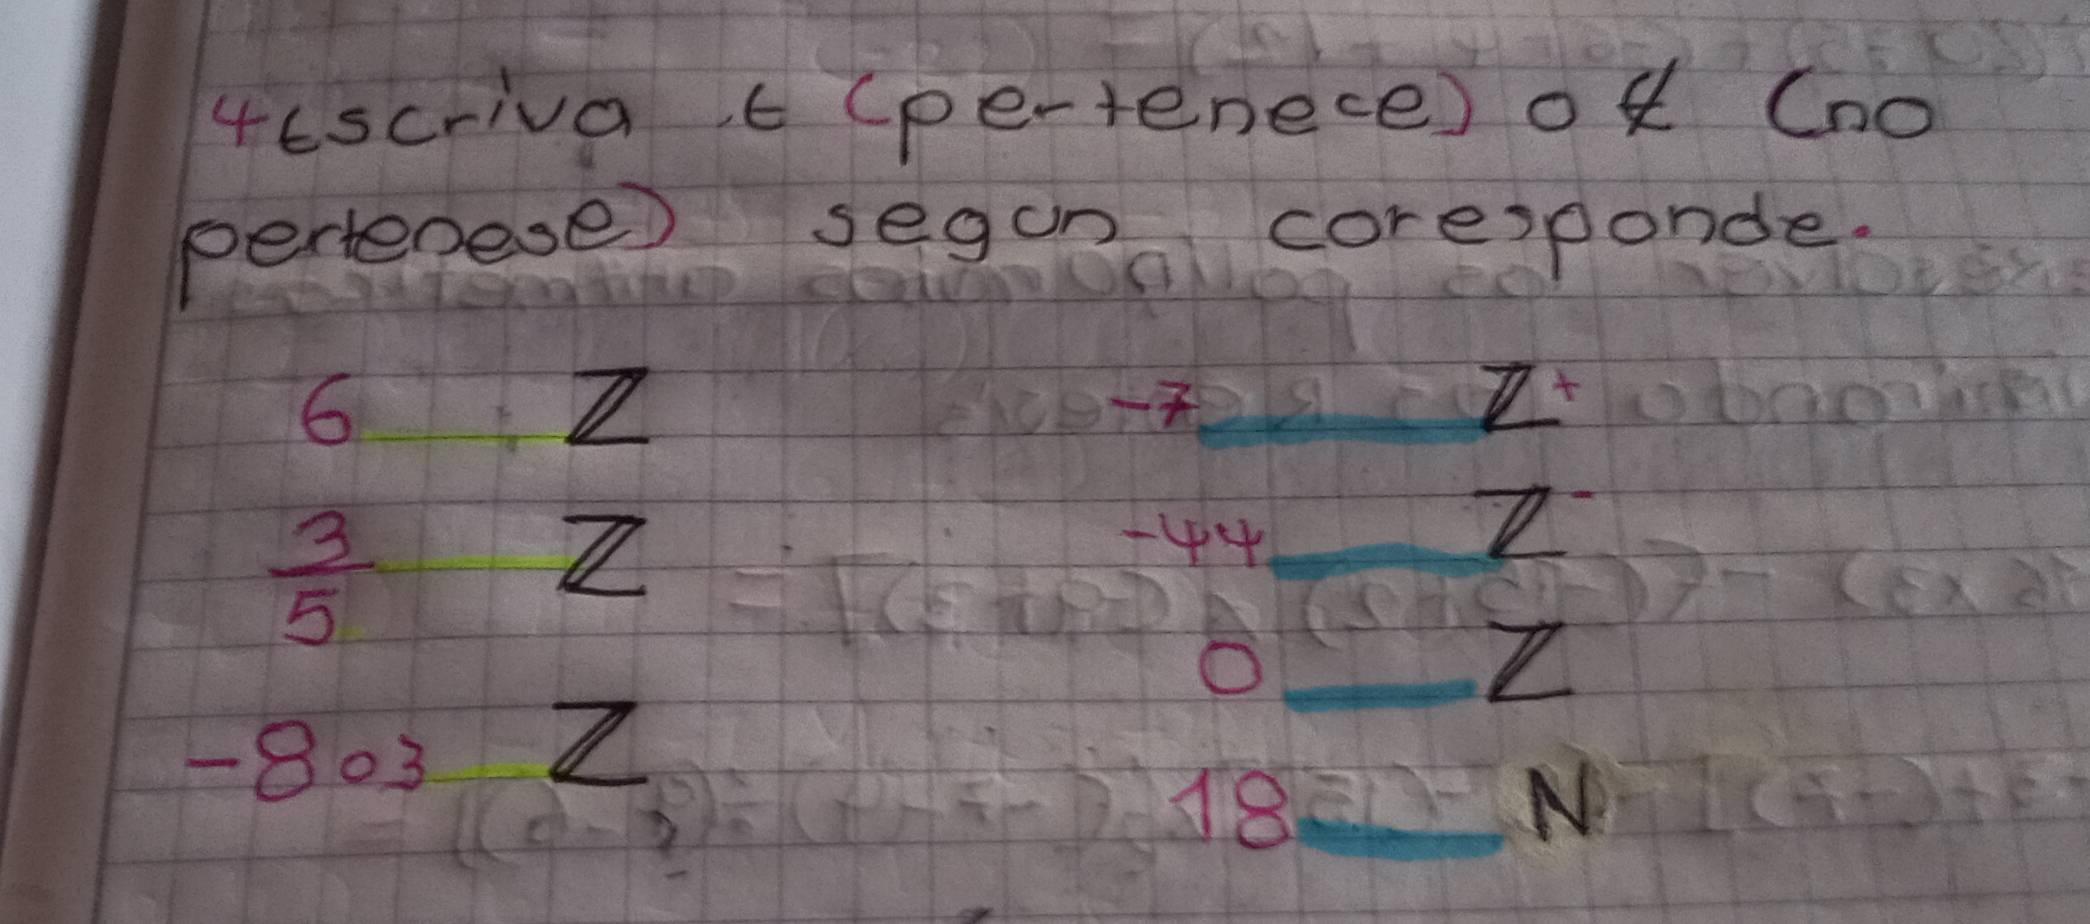 4 Escriva ∈ (pertenece) o ∉ (no
pertenese) segun coresponde.
6 ___ Z
3/5 ___ Z
-803 ___ Z
-7 ___ Z⁺
-44 ___ Z⁻
0 ___ Z
18 ___ N